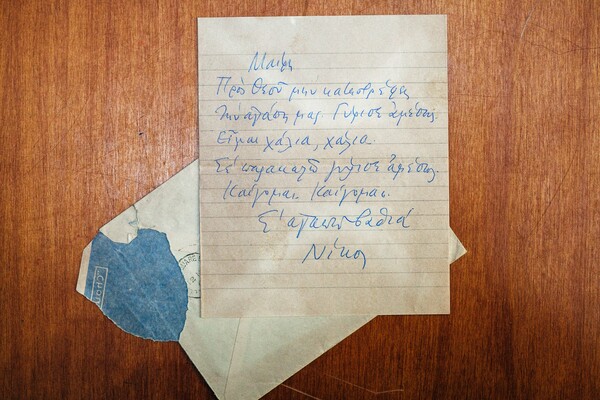 Μαίρη
Πρὸς Θεοῦ μην καταστρέφεις
την αγάπη μας. Γύρισε ἀμέσως.
Εἶμαι χάλια, χάλια.
Σέ παρακαλῶ γύρισε ἀμέσως.
Καίγομαι. Καίγομαι.
Σ' αγαπώ βαθιά
Νίκος